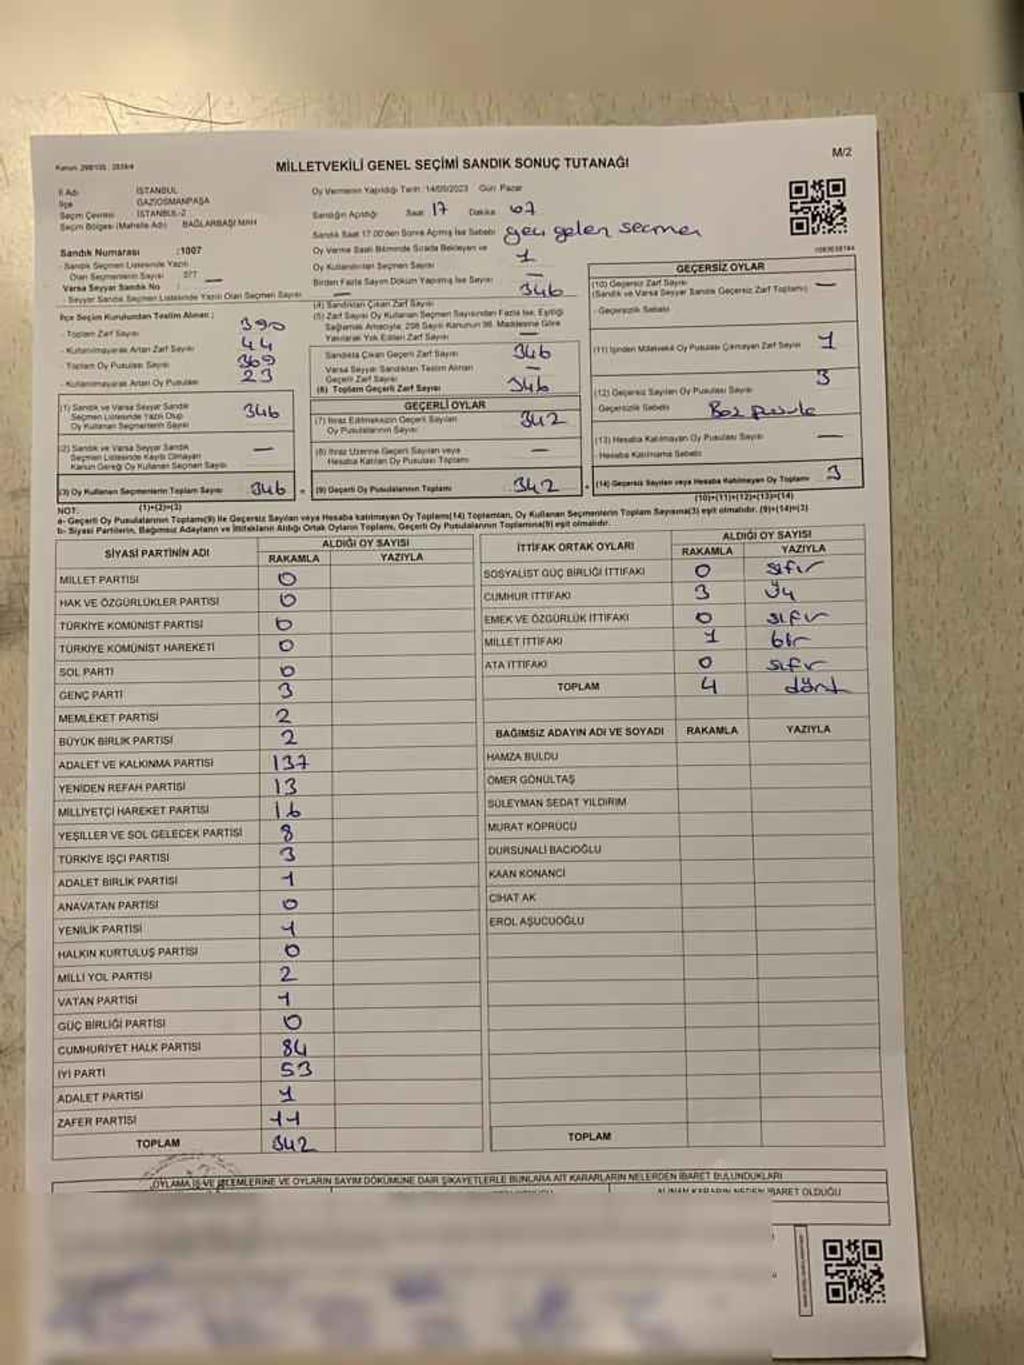 Kanun: 298/105 ; 2839/4
MİLLETVEKİLİ GENEL SEÇİMİ SANDIK SONUÇ TUTANAĞI
M/2
İl Adı İSTANBUL
İlçe GAZİOSMANPAŞA
Seçim Çevresi İSTANBUL-2
Seçim Bölgesi (Mahalle Adı) BAĞLARBAŞI MAH
Sandık Numarası :1007
- Sandık Seçmen Listesinde Yazılı
Olan Seçmenlerin Sayısı 377
Varsa Seyyar Sandık No : —
- Seyyar Sandık Seçmen Listesinde Yazılı Olan Seçmen Sayısı —
İlçe Seçim Kurulundan Teslim Alınan ;
- Toplam Zarf Sayısı 390
- Kullanılmayarak Artan Zarf Sayısı 44
- Toplam Oy Pusulası Sayısı 369
- Kullanılmayarak Artan Oy Pusulası 23
(1) Sandık ve Varsa Seyyar Sandık
Seçmen Listesinde Yazılı Olup
Oy Kullanan Seçmenlerin Sayısı 346
(2) Sandık ve Varsa Seyyar Sandık
Seçmen Listesinde Kaydı Olmayan
Kanun Gereği Oy Kullanan Seçmen Sayısı —
(3) Oy Kullanan Seçmenlerin Toplam Sayısı 346
(1)+(2)=(3)
Oy Vermenin Yapıldığı Tarih :14/05/2023 Gün: Pazar
Sandığın Açıldığı Saat 17 Dakika 07
Sandık Saat 17.00'den Sonra Açılmış İse Sebebi geç gelen seçmen
Oy Verme Saati Bitiminde Sırada Bekleyen ve
Oy Kullandırılan Seçmen Sayısı 1
Birden Fazla Sayım Döküm Yapılmış İse Sayısı —
(4) Sandıktan Çıkan Zarf Sayısı 346
(5) Zarf Sayısı Oy Kullanan Seçmen Sayısından Fazla İse, Eşitliği
Sağlamak Amacıyla; 298 Sayılı Kanunun 98. Maddesine Göre
Yakılarak Yok Edilen Zarf Sayısı —
Sandıkta Çıkan Geçerli Zarf Sayısı 346
Varsa Seyyar Sandıktan Teslim Alınan
Geçerli Zarf Sayısı —
(6) Toplam Geçerli Zarf Sayısı 346
GEÇERLİ OYLAR
(7) İtiraz Edilmeksizin Geçerli Sayılan
Oy Pusulalarının Sayısı 342
(8) İtiraz Üzerine Geçerli Sayılan veya
Hesaba Katılan Oy Pusulaları Toplamı —
= (9) Geçerli Oy Pusulalarının Toplamı 342
GEÇERSİZ OYLAR
(10) Geçersiz Zarf Sayısı —
(Sandık ve Varsa Seyyar Sandık Geçersiz Zarf Toplamı)
- Geçersizlik Sebebi
(11) İçinden Milletvekili Oy Pusulası Çıkmayan Zarf Sayısı 1
(12) Geçersiz Sayılan Oy Pusulası Sayısı 3
Geçersizlik Sebebi Boş pusula
(13) Hesaba Katılmayan Oy Pusulası Sayısı —
- Hesaba Katılmama Sebebi
+ (14) Geçersiz Sayılan veya Hesaba Katılmayan Oy Toplamı 3
(10)+(11)+(12)+(13)=(14)
NOT:
a- Geçerli Oy Pusulalarının Toplamı(9) ile Geçersiz Sayılan veya Hesaba Katılmayan Oy Pusulaları Toplamı(14) Toplamları, Oy Kullanan Seçmenlerin Toplam Sayısına(3) eşit olmalıdır. (9)+(14)=(3)
b- Siyasi Partilerin, Bağımsız Adayların ve İttifakların Aldığı Ortak Oyların Toplamı, Geçerli Oy Pusulalarının Toplamına(9) eşit olmalıdır.
SİYASİ PARTİNİN ADI ALDIĞI OY SAYISI
RAKAMLA YAZIYLA
MİLLET PARTİSİ 0
HAK VE ÖZGÜRLÜKLER PARTİSİ 0
TÜRKİYE KOMÜNİST PARTİSİ 0
TÜRKİYE KOMÜNİST HAREKETİ 0
SOL PARTİ 0
GENÇ PARTİ 3
MEMLEKET PARTİSİ 2
BÜYÜK BİRLİK PARTİSİ 2
ADALET VE KALKINMA PARTİSİ 137
YENİDEN REFAH PARTİSİ 13
MİLLİYETÇİ HAREKET PARTİSİ 16
YEŞİLLER VE SOL GELECEK PARTİSİ 8
TÜRKİYE İŞÇİ PARTİSİ 3
ADALET BİRLİK PARTİSİ 1
ANAVATAN PARTİSİ 0
YENİLİK PARTİSİ 1
HALKIN KURTULUŞ PARTİSİ 0
MİLLİ YOL PARTİSİ 2
VATAN PARTİSİ 1
GÜÇ BİRLİĞİ PARTİSİ 0
CUMHURİYET HALK PARTİSİ 84
İYİ PARTİ 53
ADALET PARTİSİ 1
ZAFER PARTİSİ 11
TOPLAM 342
İTTİFAK ORTAK OYLARI ALDIĞI OY SAYISI
RAKAMLA YAZIYLA
SOSYALİST GÜÇ BİRLİĞİ İTTİFAKI 0 sıfır
CUMHUR İTTİFAKI 3 üç
EMEK VE ÖZGÜRLÜK İTTİFAKI 0 sıfır
MİLLET İTTİFAKI 1 bir
ATA İTTİFAKI 0 sıfır
TOPLAM 4 dört
BAĞIMSIZ ADAYIN ADI VE SOYADI RAKAMLA YAZIYLA
HAMZA BULDU
ÖMER GÖNÜLTAŞ
SÜLEYMAN SEDAT YILDIRIM
MURAT KÖPRÜCÜ
DURSUNALİ BACIOĞLU
KAAN KONANCI
CİHAT AK
EROL AŞUCUOĞLU
TOPLAM
OYLAMA İŞ VE İŞLEMLERİNE VE OYLARIN SAYIM DÖKÜMÜNE DAİR ŞİKAYETLERLE BUNLARA AİT KARARLARIN NELERDEN İBARET BULUNDUKLARI
ALINAN KARARIN NEDEN İBARET OLDUĞU